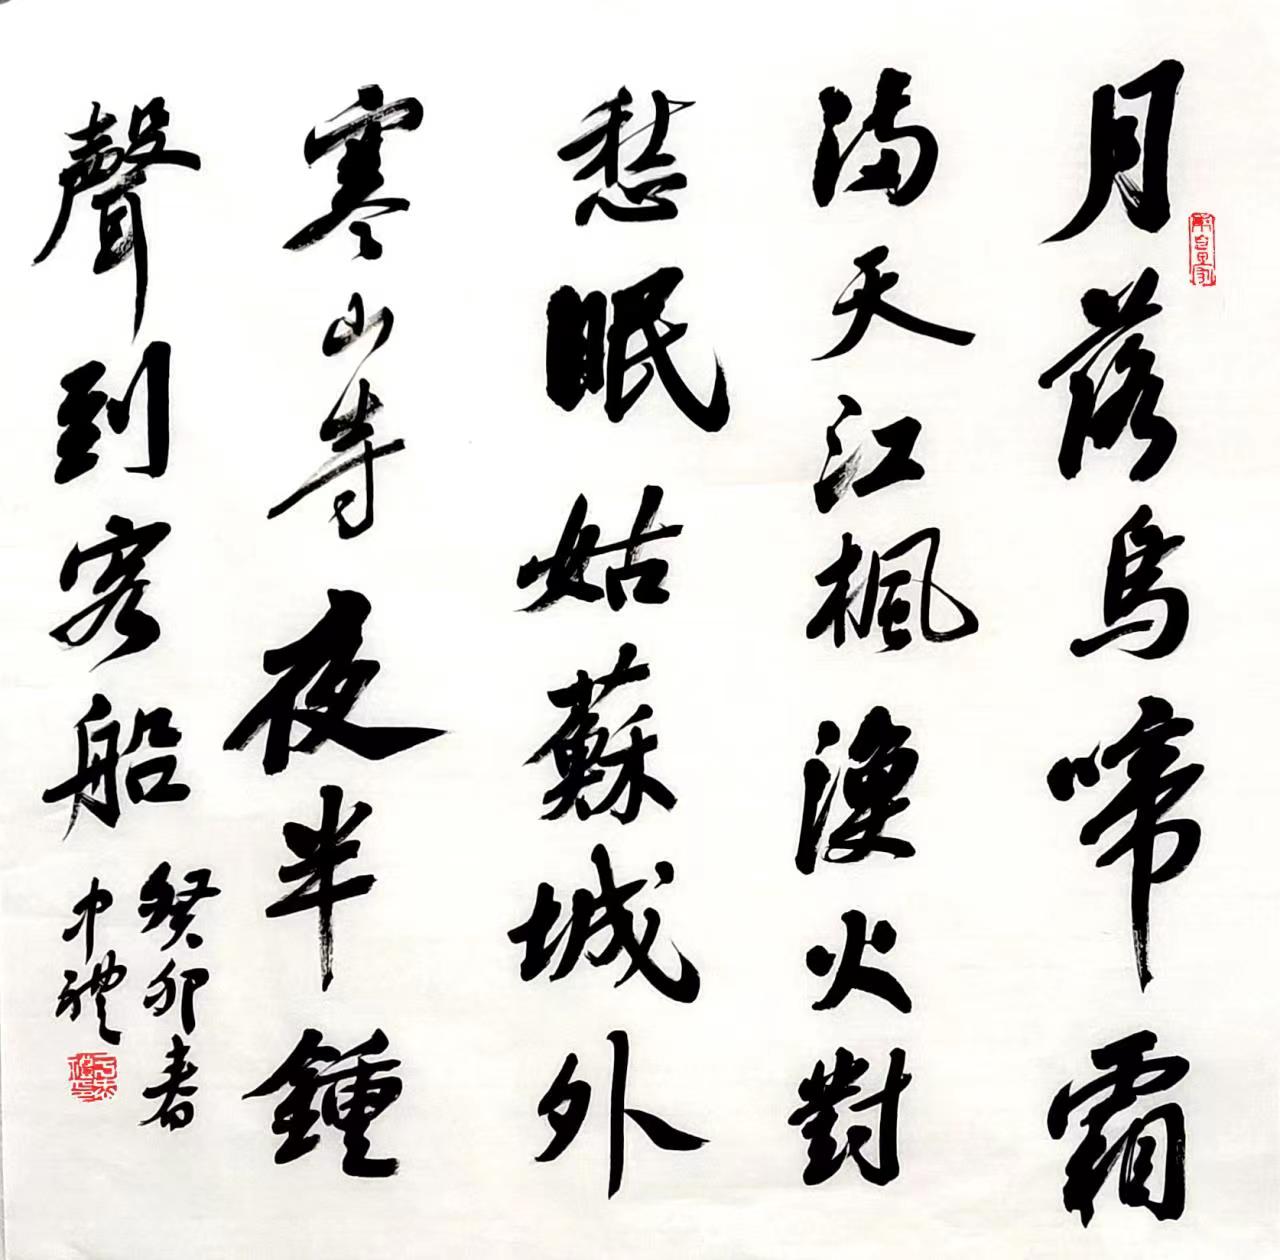 月落烏啼霜
滿天江楓漁火對
愁眠姑蘇城外
寒山寺夜半鍾
聲到客船
癸卯春
中礼